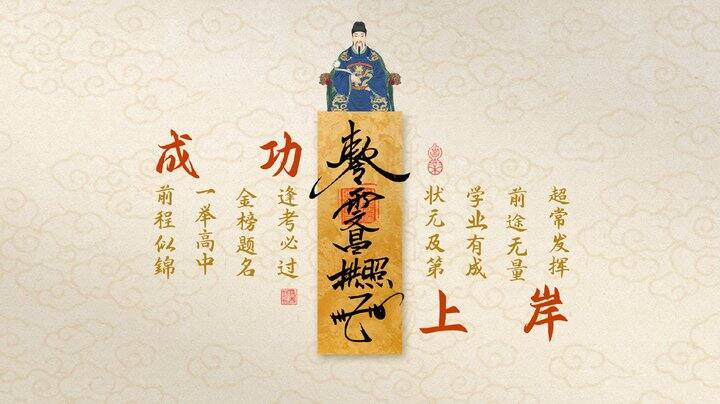 成功
前程似錦
一举高中
金榜题名
逢考必过
昌拱照
状元及第
学业有成
前途无量
超常发挥
上岸